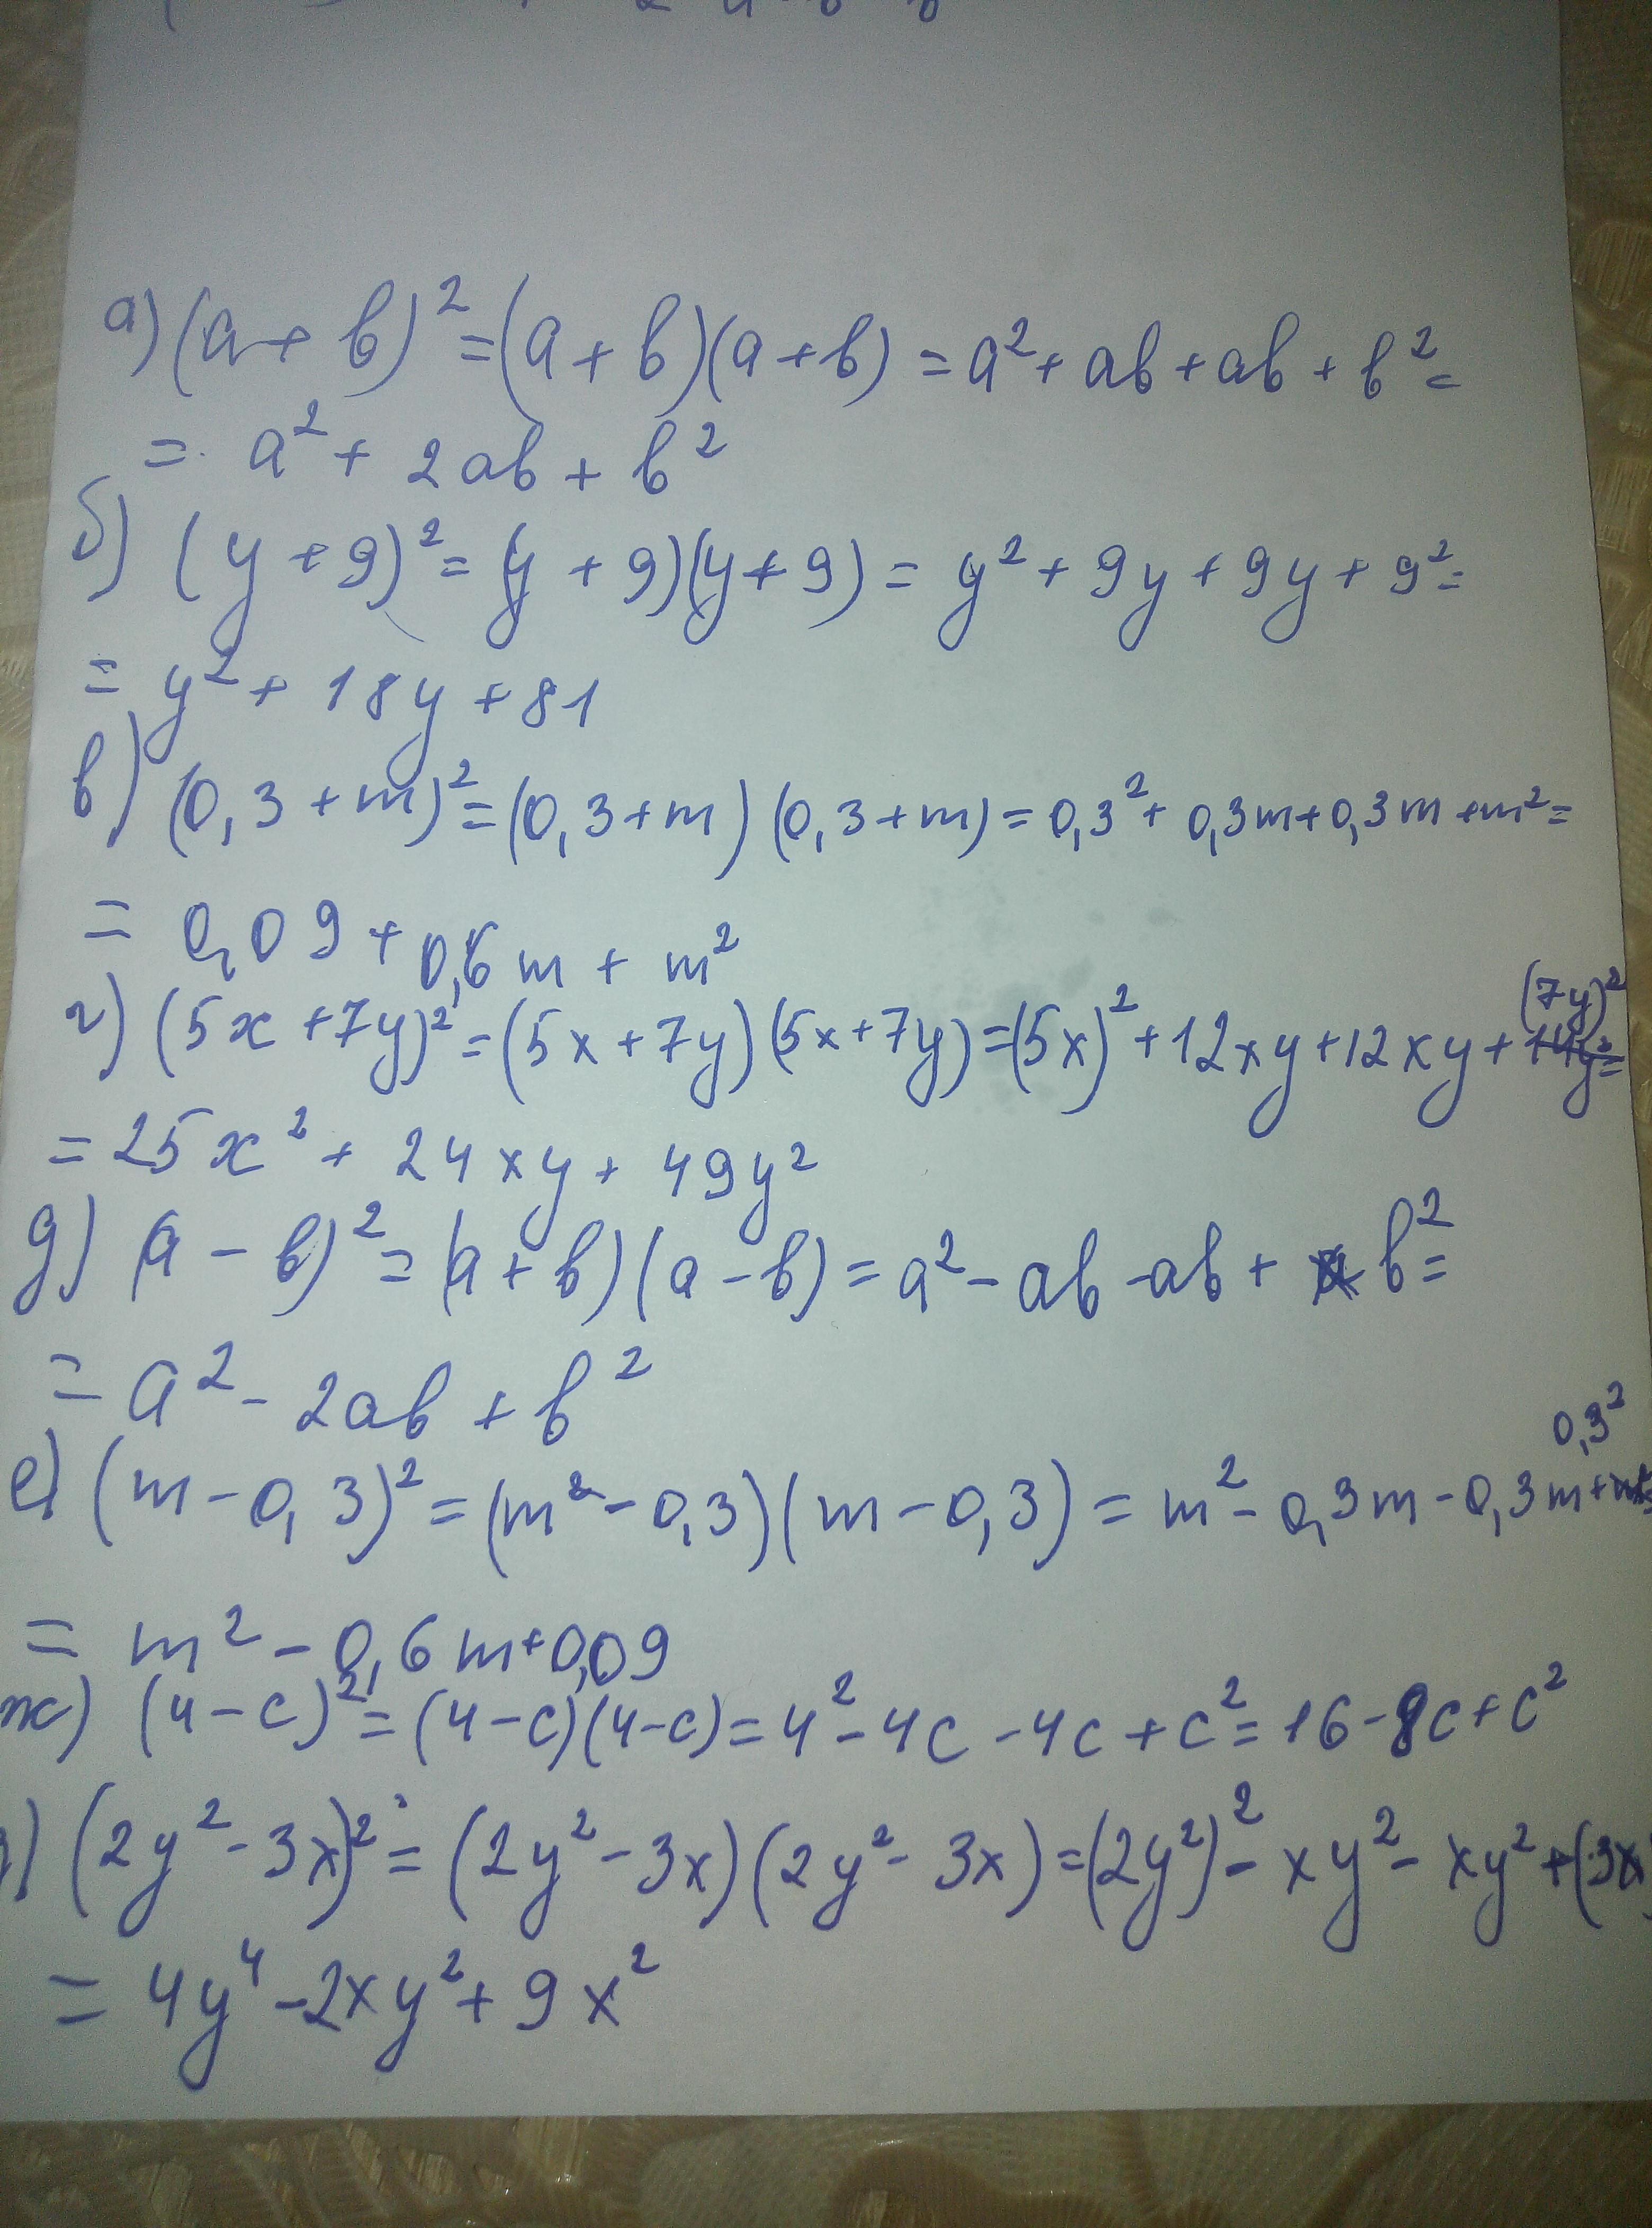 а) (a + b)² = (a + b)(a + b) = a² + ab + ab + b² =
= a² + 2ab + b²
б) (y + 9)² = (y + 9)(y + 9) = y² + 9y + 9y + 9² =
= y² + 18y + 81
в) (0,3 + m)² = (0,3 + m)(0,3 + m) = 0,3² + 0,3m + 0,3m + m² =
= 0,09 + 0,6m + m²
г) (5x + 7y)² = (5x + 7y)(5x + 7y) = (5x)² + 12xy + 12xy + (7y)² =
= 25x² + 24xy + 49y²
д) (a - b)² = (a + b)(a - b) = a² - ab - ab + b² =
= a² - 2ab + b²
е) (m - 0,3)² = (m² - 0,3)(m - 0,3) = m² - 0,3m - 0,3m + 0,3²
= m² - 0,6m + 0,09
ж) (4 - c)² = (4 - c)(4 - c) = 4² - 4c - 4c + c² = 16 - 8c + c²
) (2y² - 3x)² = (2y² - 3x)(2y² - 3x) = (2y²)² - xy² - xy² + (3x)
= 4y⁴ - 2xy² + 9x²